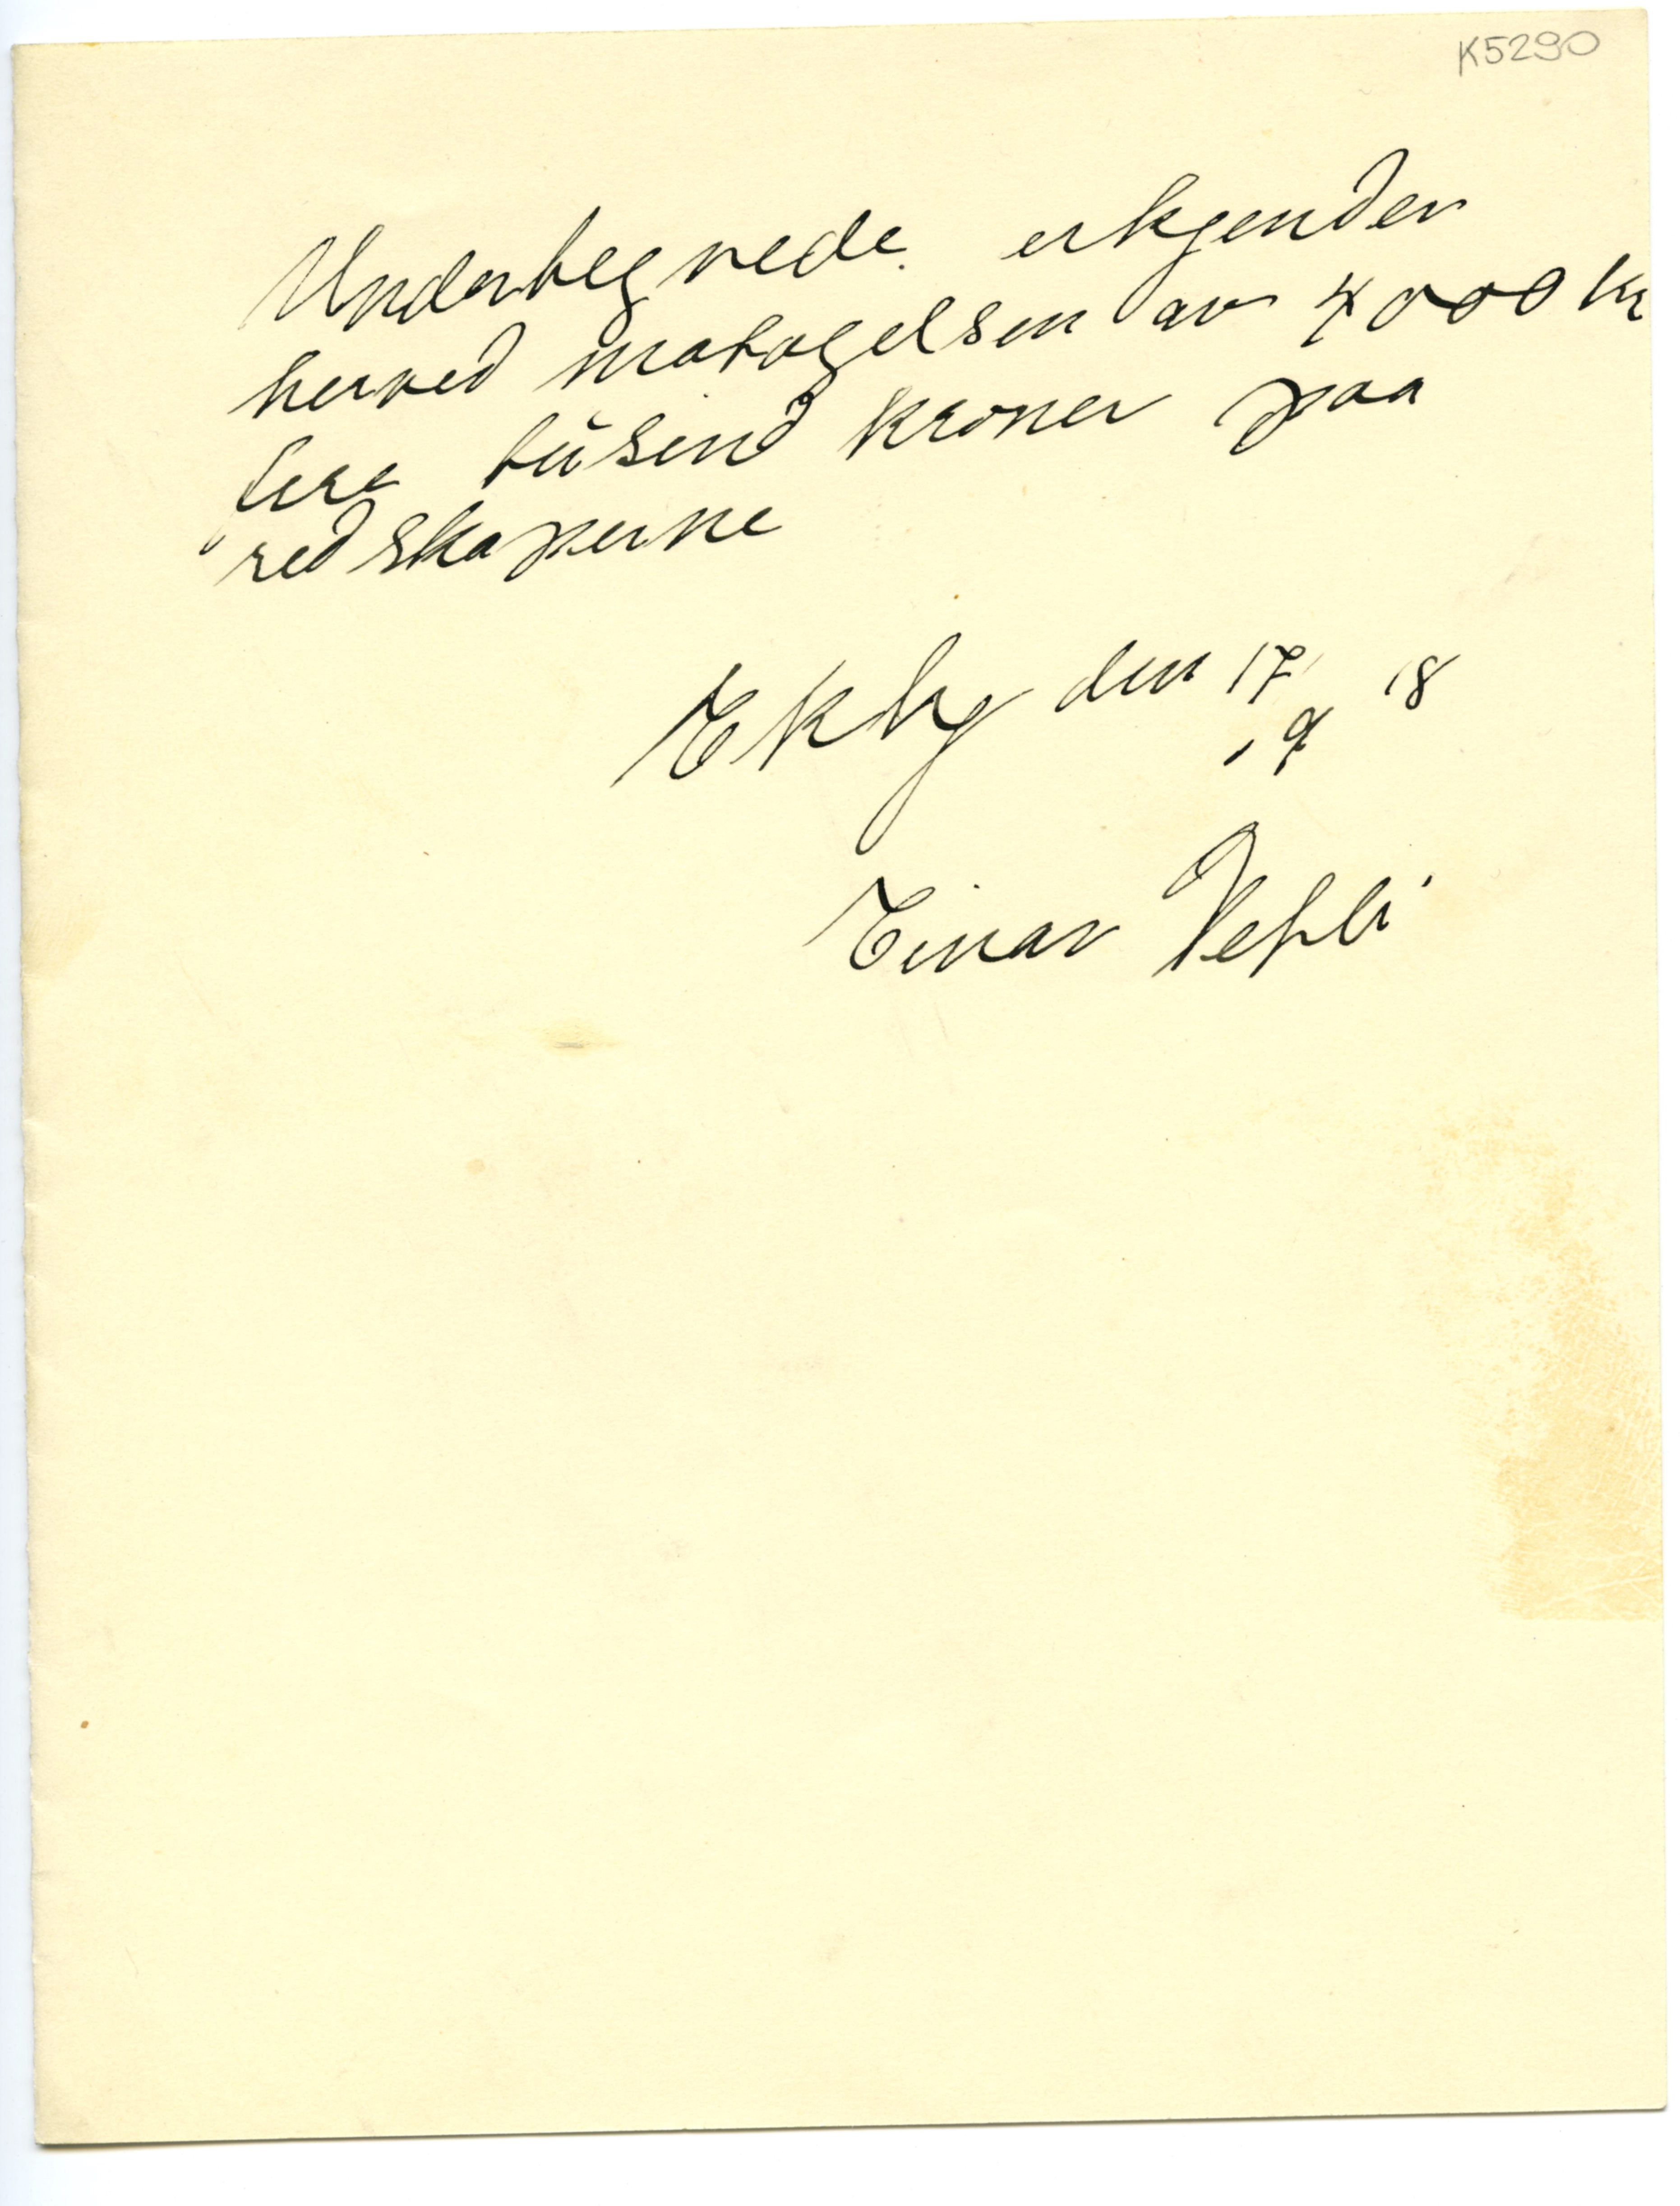 K5290
Undertegnede erkjender
herved motagelsen av 4000 Kr
fire tusend kroner paa
redskaperne
Ekby den 17/9 18
Einar